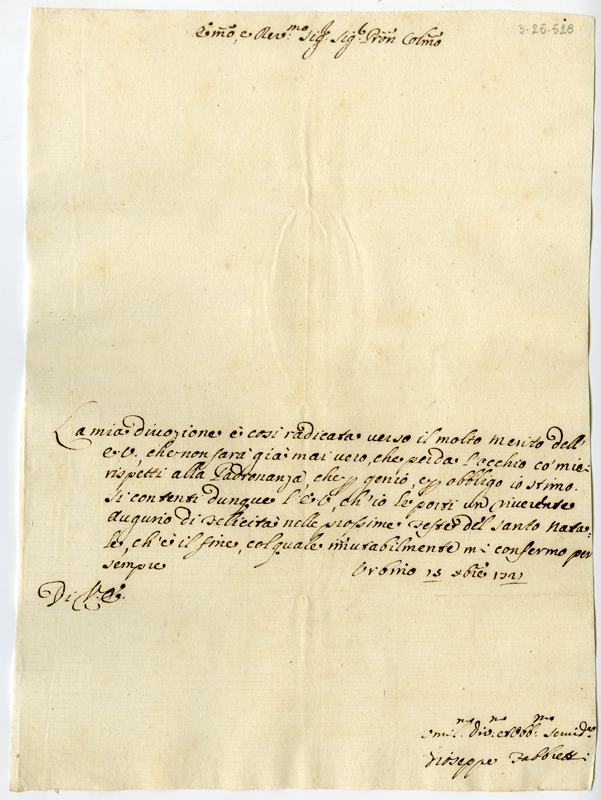 3-25-528
Emo, e Rev.mo Sig. Sig.r Pron Colmo
La mia divozione è così radicata verso il molto merito dell'
E.V., che non sarà già mai vero, che perda l'occhio co' miei
rispetti alla Padronanza, che p genio, e p obbligo io stimo.
Si contenti dunque l'E.V. ch'io le porti un riverente
augurio di Felicità nelle prossime Feste del Santo Nata-
le, ch'è il fine, col quale immutabilmente mi confermo per
sempre
Urbino 15 Xbre 1721
Di V. E.
Umil.mo Div.mo ed Obb.mo Servid.re
Gioseppe Fabbretti